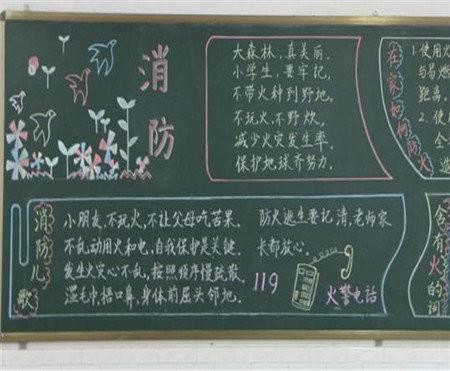 消防
大森林,真美丽.
小学生,要牢记,
不带火种到野地.
不玩火,不野炊.
减少火灾发生率.
保护地球齐努力.
在家如何防火
1.使用火
与易燃
距离.
2.使
全
消防儿歌
小朋友,不玩火,不让父母吃苦果.
不乱动用火和电,自我保护是关键.
发生火灾心不乱,按照顺序慢疏散.
湿毛巾捂口鼻,身体前屈头邻地.
防火逃生要记清,老师家
长都放心.
119
火警电话
含有火的词